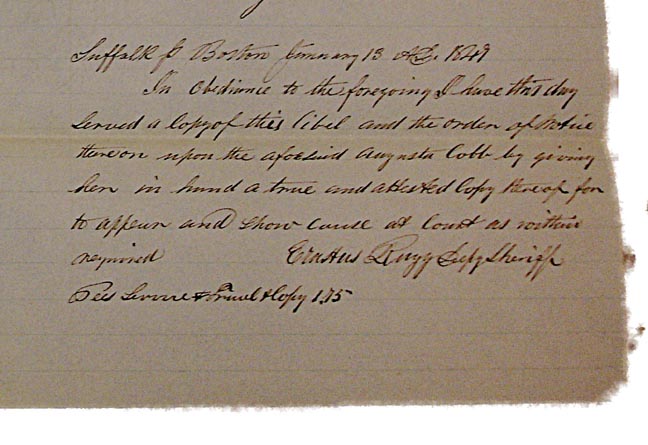 Suffolk ss Boston January 13 A.D. 1847
In obedience to the foregoing I have this day
served a Copy of this libel and the order of Notice
thereon upon the aforesaid Augusta Cobb by giving
her in hand a true and attested Copy thereof for
to appear and show cause at Court as within
required Erastus Rugg Depy Sheriff
Fees Service & Travel & Copy 1.75